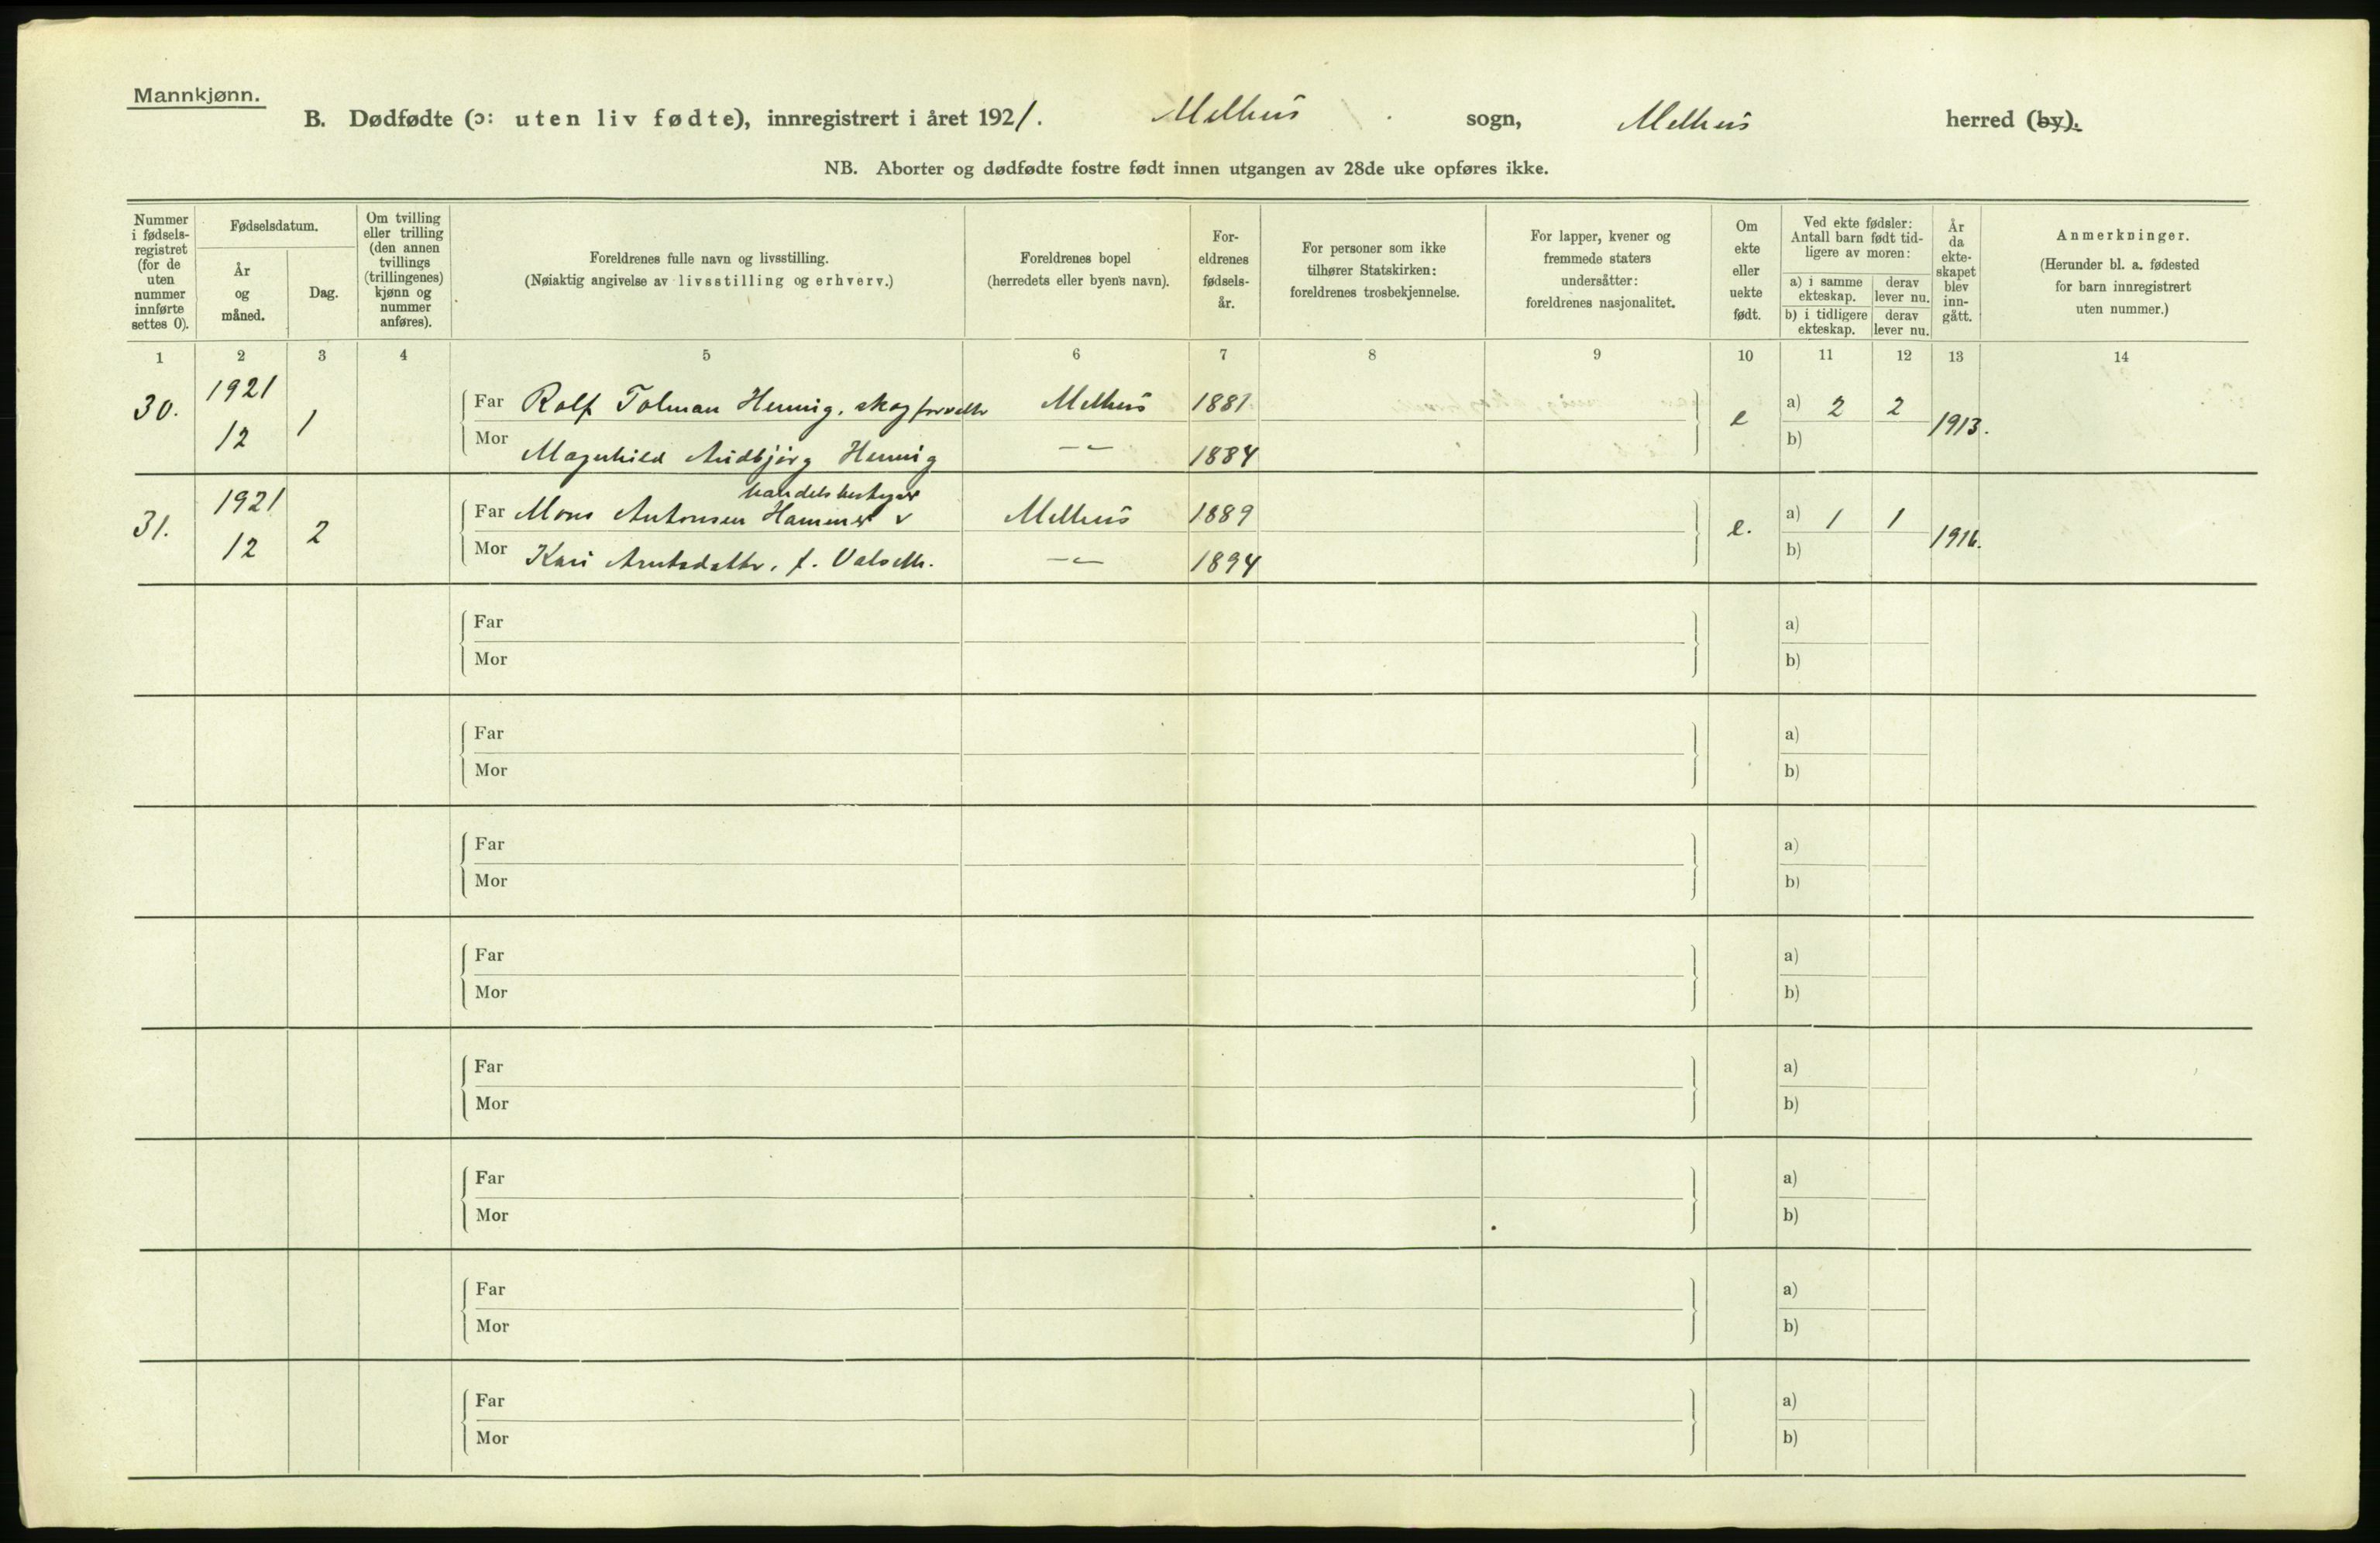 Mannkjønn.
B. Dødfødte (ɔ: uten liv fødte), innregistrert i året 1921. Melhus sogn, Melhus herred (by).
NB. Aborter og dødfødte fostre født innen utgangen av 28de uke opføres ikke.
Nummer i fødsels-registret (for de uten nummer innførte settes 0).
Fødselsdatum.
År og måned.
Dag.
Om tvilling eller trilling (den annen tvillings (trillingenes) kjønn og nummer anføres).
Foreldrenes fulle navn og livsstilling.
(Nøiaktig angivelse av livsstilling og erhverv.)
Foreldrenes bopel
(herredets eller byens navn).
For-eldrenes fødsels-år.
For personer som ikke tilhører Statskirken: foreldrenes trosbekjennelse.
For lapper, kvener og fremmede staters undersåtter: foreldrenes nasjonalitet.
Om ekte eller uekte født.
Ved ekte fødsler: Antall barn født tid-ligere av moren:
a) i samme ekteskap. derav lever nu.
b) i tidligere ekteskap. derav lever nu.
År da ekte-skapet blev inn-gått.
Anmerkninger.
(Herunder bl. a. fødested for barn innregistrert uten nummer.)
1 2 3 4 5 6 7 8 9 10 11 12 13 14
30. 1921 12 1 Far Rolf Tolman Hennig, skogforvalter Melhus 1881 e a) 2 2 1913.
Mor Magnhild Audbjørg Hennig –"– 1884 b)
handelsbestyrer
31. 1921 12 2 Far Mons Antonsen Hammer Melhus 1889 e. a) 1 1 1916.
Mor Kari Arntsdatter, f. Valseth. –"– 1894 b)
Far a)
Mor b)
Far a)
Mor b)
Far a)
Mor b)
Far a)
Mor b)
Far a)
Mor b)
Far a)
Mor b)
Far a)
Mor b)
Far a)
Mor b)